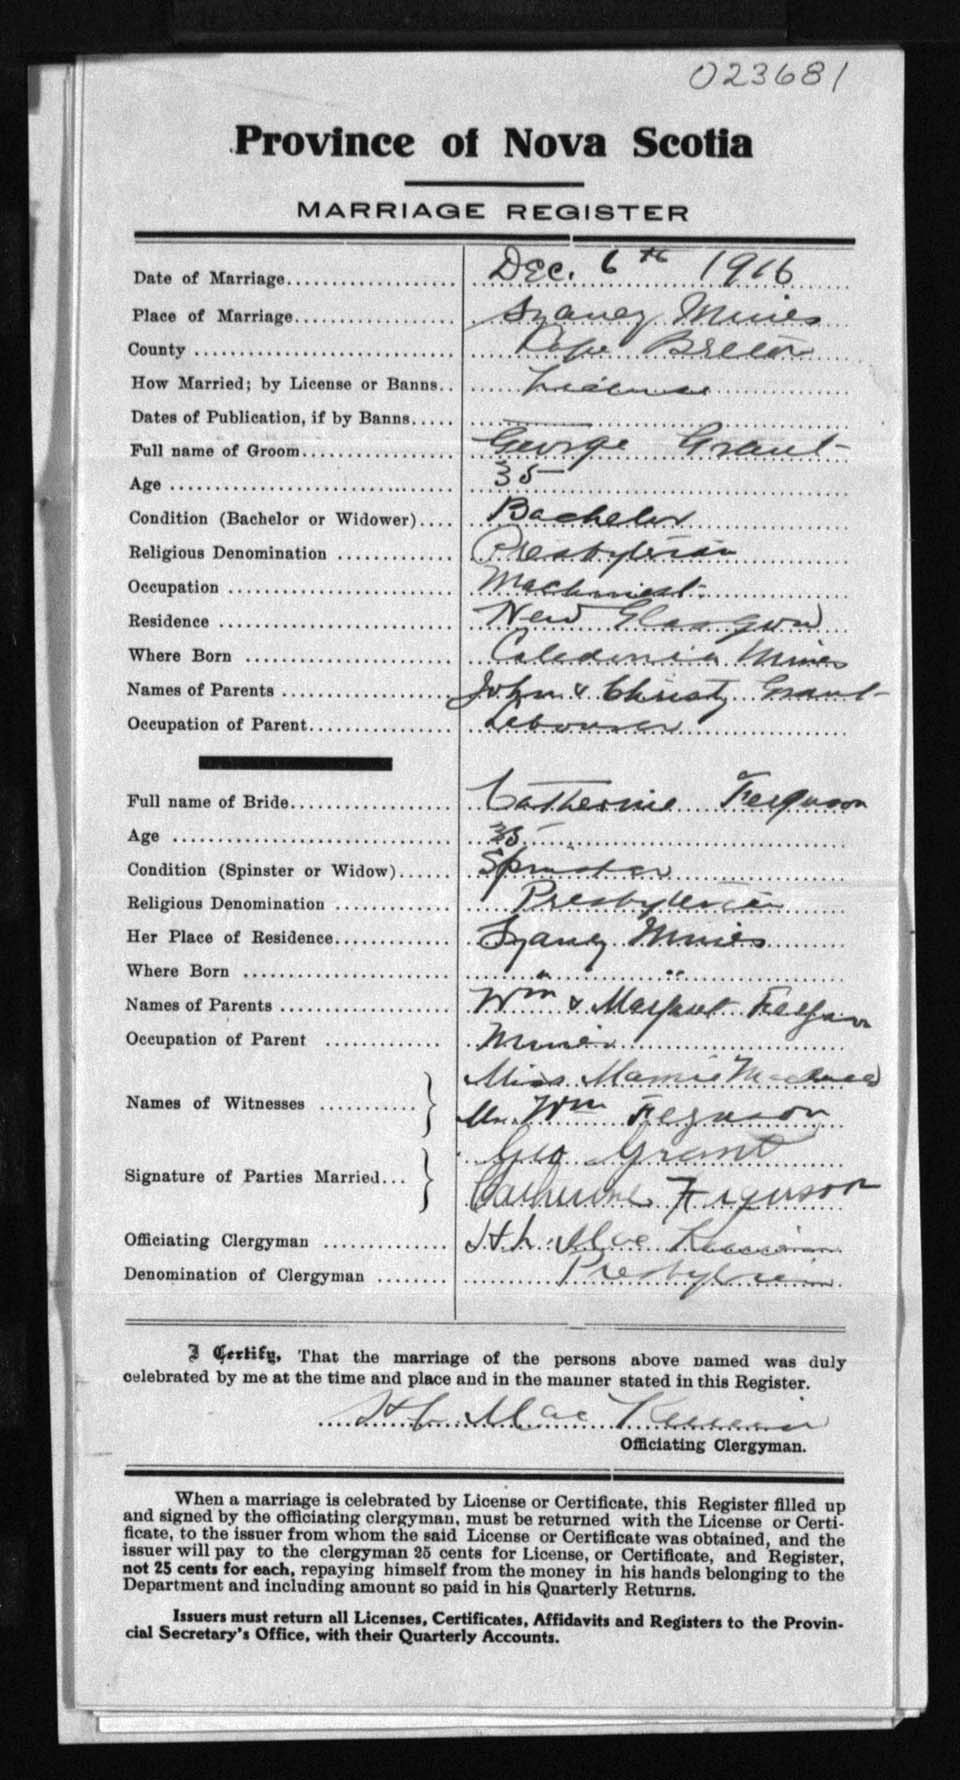 023681
Province of Nova Scotia
MARRIAGE REGISTER
Date of Marriage Dec. 6th 1916
Place of Marriage Sydney Mines
County Cape Breton
How Married; by License or Banns License
Dates of Publication, if by Banns
Full name of Groom George Grant
Age 35
Condition (Bachelor or Widower) Bachelor
Religious Denomination Presbyterian
Occupation Machinist
Residence New Glasgow
Where Born Caledonia Mines
Names of Parents John & Christy Grant
Occupation of Parent Labourer
Full name of Bride Catherine Ferguson
Age 35
Condition (Spinster or Widow) Spinster
Religious Denomination Presbyterian
Her Place of Residence Sydney Mines
Where Born " "
Names of Parents Wm & Margaret Ferguson
Occupation of Parent Miner
Names of Witnesses Miss Mamie
Mr. Wm Ferguson
Signature of Parties Married Geo Grant
Catherine Ferguson
Officiating Clergyman H. L. Mac
Denomination of Clergyman Presbyterian
I Certify, That the marriage of the persons above named was duly
celebrated by me at the time and place and in the manner stated in this Register.
H L Mac
Officiating Clergyman.
When a marriage is celebrated by License or Certificate, this Register filled up
and signed by the officiating clergyman, must be returned with the License or Certi-
ficate, to the issuer from whom the said License or Certificate was obtained, and the
issuer will pay to the clergyman 25 cents for License, or Certificate, and Register,
not 25 cents for each, repaying himself from the money in his hands belonging to the
Department and including amount so paid in his Quarterly Returns.
Issuers must return all Licenses, Certificates, Affidavits and Registers to the Provin-
cial Secretary's Office, with their Quarterly Accounts.